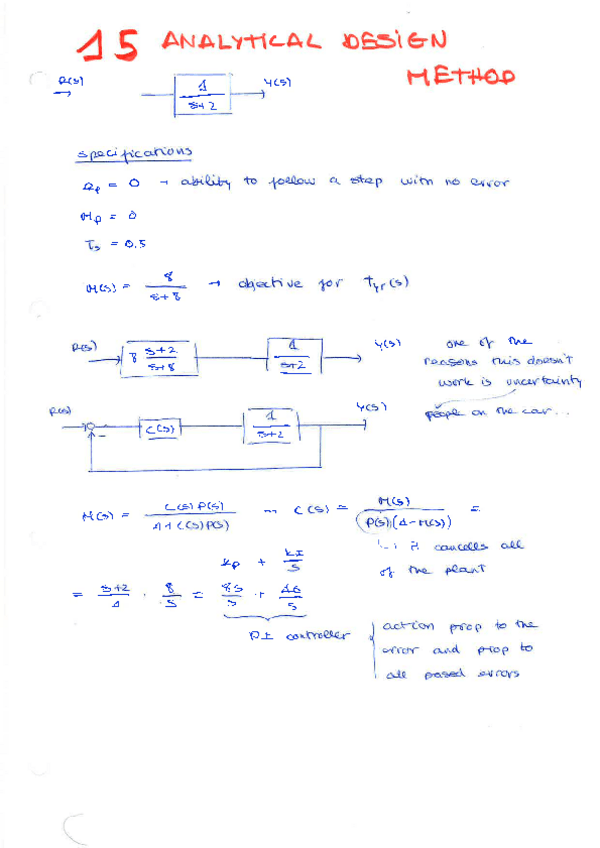 15 ANALYTICAL DESIGN
METHOD
R(s) 1/(s+2) Y(s)
specifications
= 0 → ability to follow a step with no error
Mp = 0
Ts = 0.5
M(s) = 8/(s+8) → objective for Tyr(s)
R(s) 8 (s+2)/(s+8) 1/(s+2) Y(s)
one of the
reasons this doesn't
work is uncertainty
people on the car...
R(s) - C(s) 1/(s+2) Y(s)
M(s) = C(s)P(s)/(1+C(s)P(s)) C(s) = M(s)/(P(s)(1-M(s))) =
it cancells all
of the plant
kp + kI/s
= (s+2)/1 · 8/s = 8s/s + 16/s
PI controller
action prop to the
error and prop to
all pased errors